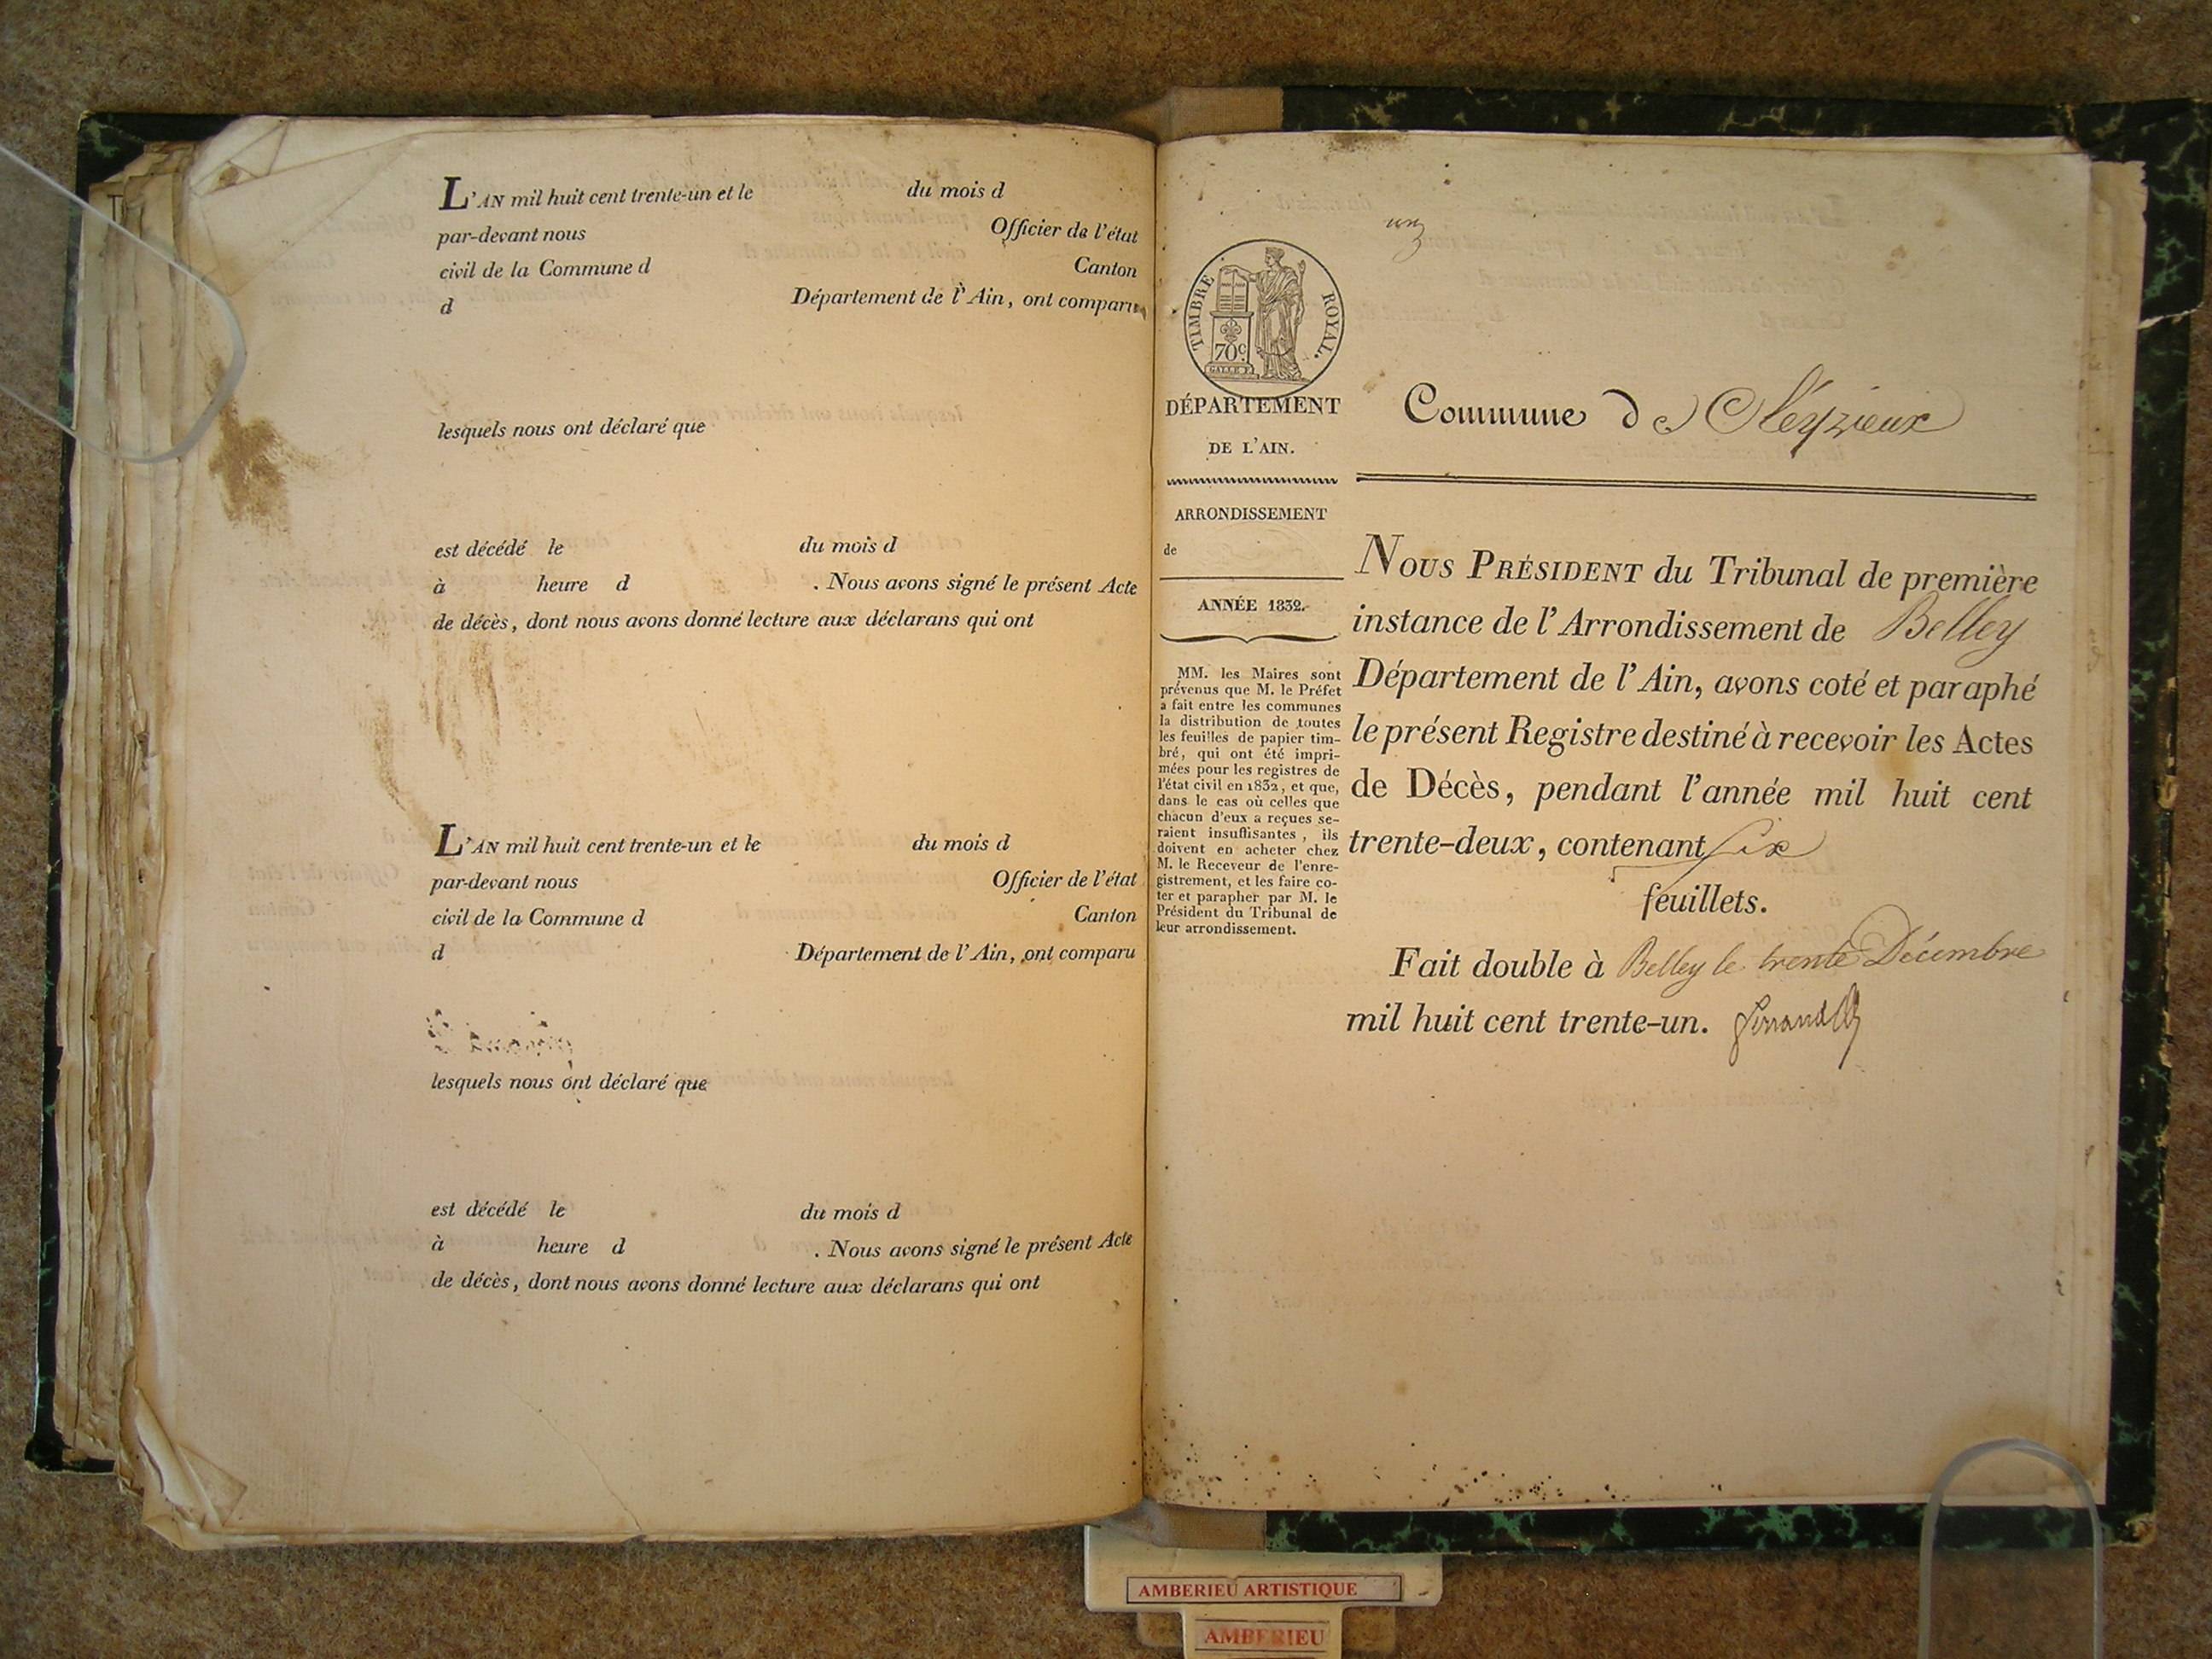 L'AN mil huit cent trente-un et le du mois d
par-devant nous Officier de l'état
civil de la Commune d Canton
d Département de l'Ain, ont comparu
lesquels nous ont déclaré que
est décédé le du mois d
à heure d . Nous avons signé le présent Acte
de décès, dont nous avons donné lecture aux déclarans qui ont
L'AN mil huit cent trente-un et le du mois d
par-devant nous Officier de l'état
civil de la Commune d Canton
d Département de l'Ain, ont comparu
lesquels nous ont déclaré que
est décédé le du mois d
à heure d . Nous avons signé le présent Acte
de décès, dont nous avons donné lecture aux déclarans qui ont
un
TIMBRE ROYAL.
70c.
DÉPARTEMENT
DE L'AIN.
ARRONDISSEMENT
de
ANNÉE 1832.
MM. les Maires sont
prévenus que M. le Préfet
a fait entre les communes
la distribution de toutes
les feuilles de papier tim-
bré, qui ont été impri-
mées pour les registres de
l'état civil en 1832, et que,
dans le cas où celles que
chacun d'eux a reçues se-
raient insuffisantes, ils
doivent en acheter chez
M. le Receveur de l'enre-
gistrement, et les faire co-
ter et parapher par M. le
Président du Tribunal de
leur arrondissement.
Commune de Cleyzieux
NOUS PRÉSIDENT du Tribunal de première
instance de l'Arrondissement de Belley
Département de l'Ain, avons coté et paraphé
le présent Registre destiné à recevoir les Actes
de Décès, pendant l'année mil huit cent
trente-deux, contenant six
feuillets.
Fait double à Belley le trente Décembre
mil huit cent trente-un.
AMBERIEU ARTISTIQUE
AMBERIEU